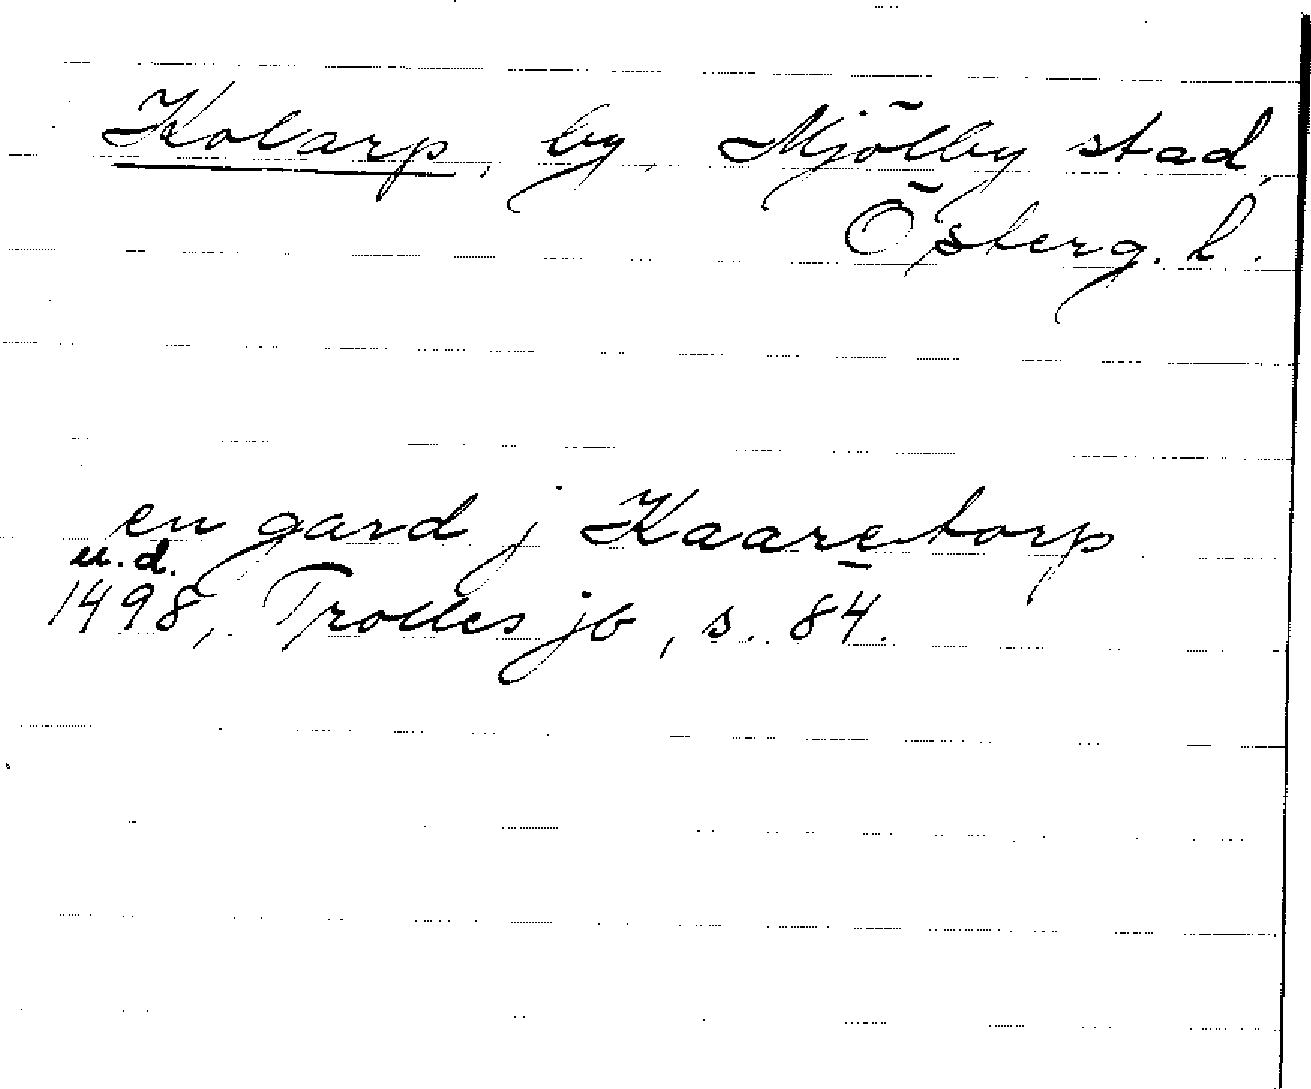 Kolarp, by, Mjölby stad,
Österg. l.
en gard j Kaaretorp
u.d.
1498, Trolles jb, s. 84.